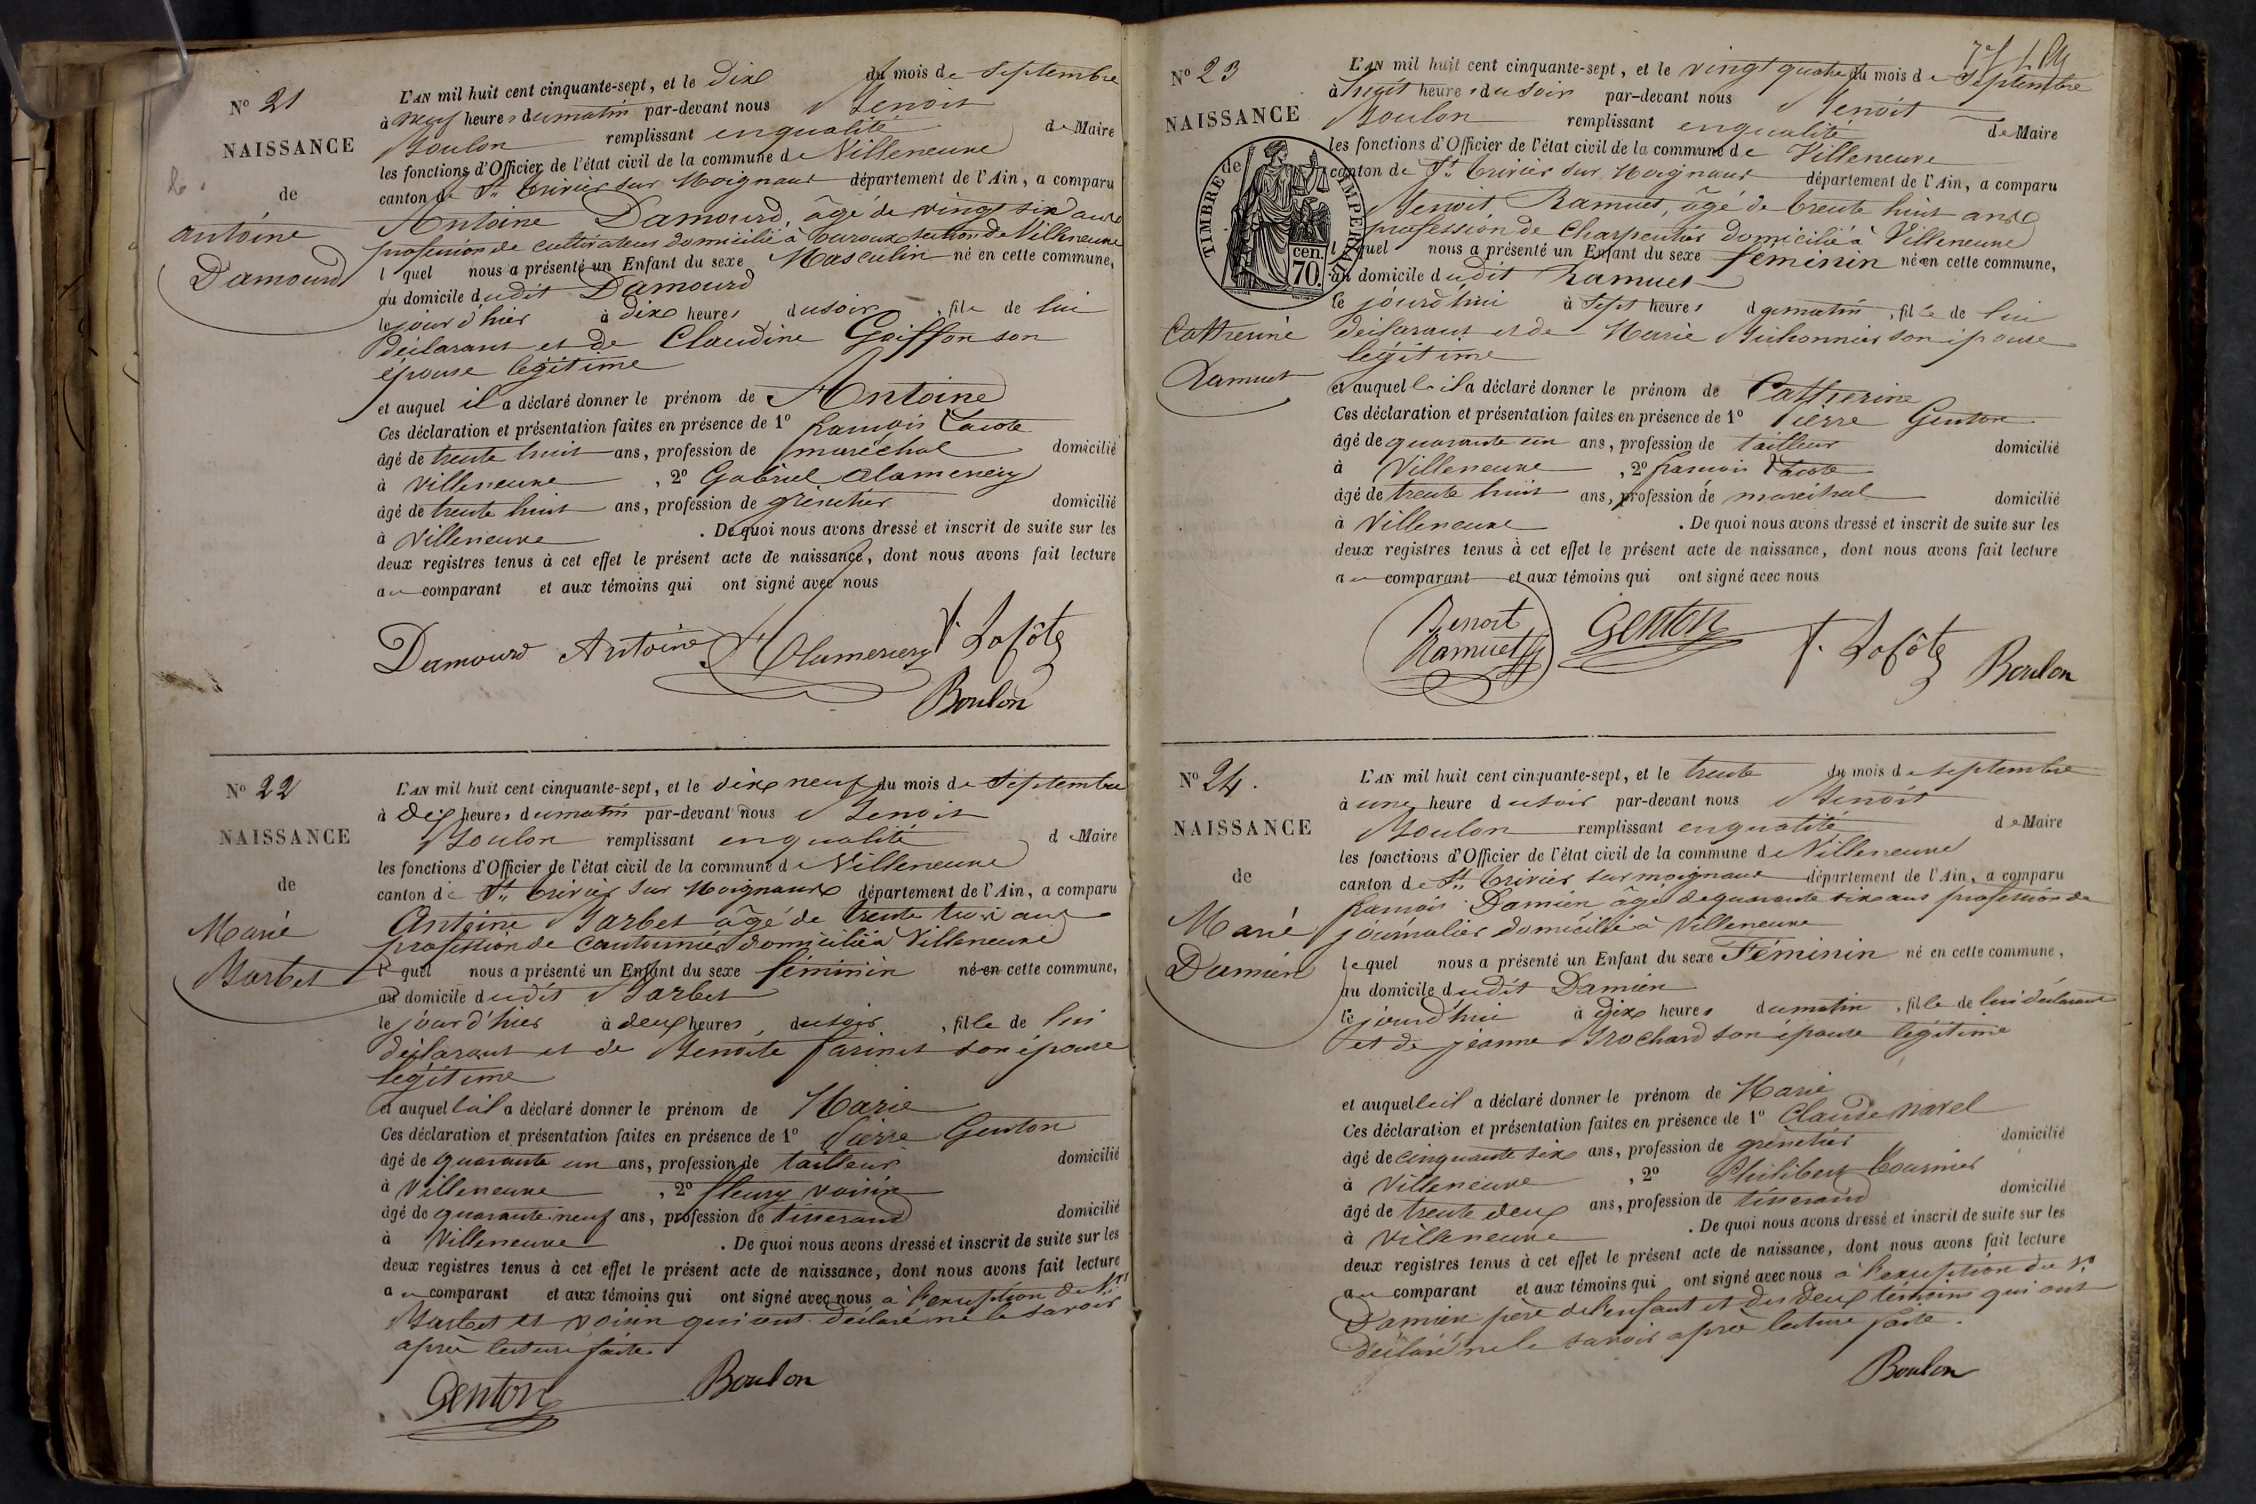 N° 21
NAISSANCE
de
antoine
Damourd
L'AN mil huit cent cinquante-sept, et le dix du mois de Septembre
à neuf heures du matin par-devant nous Benoit
Boulon remplissant en qualité de Maire
les fonctions d'Officier de l'état civil de la commune de Villeneuve
canton de St Trivier sur Moignans département de l'Ain, a comparu
Antoine Damourd, âgé de vingt six ans
profession de cultivateur domicilié à section de Villeneuve
lequel nous a présenté un Enfant du sexe Masculin né en cette commune,
au domicile dudit Damourd
le jour d'hier à dix heures du soir, fils de lui
déclarant et de Claudine Goiffon son
épouse légitime
et auquel il a déclaré donner le prénom de Antoine
Ces déclaration et présentation faites en présence de 1° francois Lacote
âgé de trente huit ans, profession de maréchal domicilié
à Villeneuve, 2° Gabriel Alamercery
âgé de trente huit ans, profession de grenetier domicilié
à Villeneuve. De quoi nous avons dressé et inscrit de suite sur les
deux registres tenus à cet effet le présent acte de naissance, dont nous avons fait lecture
au comparant et aux témoins qui ont signé avec nous
Damourd Antoine Alamercery f. Lacôte
Boulon
N° 22
NAISSANCE
de
Marie
Barbet
L'AN mil huit cent cinquante-sept, et le dix neuf du mois de Septembre
à dix heures du matin par-devant nous Benoit
Boulon remplissant en qualité de Maire
les fonctions d'Officier de l'état civil de la commune de Villeneuve
canton de St Trivier sur Moignans département de l'Ain, a comparu
Antoine Barbet âgé de trente trois ans
profession de domicilié à Villeneuve
lequel nous a présenté un Enfant du sexe féminin né en cette commune,
au domicile dudit Barbet
le jour d'hier à deux heures du soir, fille de lui
déclarant et de Benoite farinet son épouse
légitime
et auquelle il a déclaré donner le prénom de Marie
Ces déclaration et présentation faites en présence de 1° Pierre Genton
âgé de quarante un ans, profession de tailleur domicilié
à Villeneuve, 2° fleury voisin
âgé de quarante neuf ans, profession de tisserand domicilié
à Villeneuve. De quoi nous avons dressé et inscrit de suite sur les
deux registres tenus à cet effet le présent acte de naissance, dont nous avons fait lecture
au comparant et aux témoins qui ont signé avec nous à l'exception de Srs
Barbet et voisin qui ont déclaré ne le savoir
après lecture faite
Genton Boulon
N° 23
NAISSANCE
de
TIMBRE IMPERIAL
cen.
70.
Catherine
Ramuet
L'AN mil huit cent cinquante-sept, et le vingt quatre du mois de Septembre
à sept heures du soir par-devant nous Benoit
Boulon remplissant en qualité de Maire
les fonctions d'Officier de l'état civil de la commune de Villeneuve
canton de St Trivier sur Moignans département de l'Ain, a comparu
Benoit Ramuet, âgé de trente huit ans
profession de Charpentier domicilié à Villeneuve
lequel nous a présenté un Enfant du sexe feminin né en cette commune,
au domicile dudit Ramuet
le jourd'hui à sept heures du matin, fille de lui
déclarant et de Marie Bichonnier son épouse
légitime
et auquelle il a déclaré donner le prénom de Catherine
Ces déclaration et présentation faites en présence de 1° Pierre Genton
âgé de quarante un ans, profession de tailleur domicilié
à Villeneuve, 2° francois Lacote
âgé de trente huit ans, profession de marechal domicilié
à Villeneuve. De quoi nous avons dressé et inscrit de suite sur les
deux registres tenus à cet effet le présent acte de naissance, dont nous avons fait lecture
au comparant et aux témoins qui ont signé avec nous
Benoit
Ramuet Genton f. Lacôte Boulon
N° 24.
NAISSANCE
de
Marie
Damien
L'AN mil huit cent cinquante-sept, et le trente du mois de septembre
à une heure du soir par-devant nous Benoit
Boulon remplissant en qualité de Maire
les fonctions d'Officier de l'état civil de la commune de Villeneuve
canton de St Trivier sur moignans département de l'Ain, a comparu
francois Damien âgé de quarante six ans profession de
journalier domicilié à Villeneuve
lequel nous a présenté un Enfant du sexe Féminin né en cette commune,
au domicile dudit Damien
le jourd'hui à dix heures du matin, fille de lui déclarant
et de jeanne Brochard son épouse légitime
et auquelle il a déclaré donner le prénom de Marie
Ces déclaration et présentation faites en présence de 1° Claude navel
âgé de cinquante six ans, profession de grenetier domicilié
à Villeneuve, 2° Philibert Tournier
âgé de trente deux ans, profession de tisserand domicilié
à Villeneuve. De quoi nous avons dressé et inscrit de suite sur les
deux registres tenus à cet effet le présent acte de naissance, dont nous avons fait lecture
au comparant et aux témoins qui ont signé avec nous à l'exception du Sr
Damien père de l'enfant et des deux témoins qui ont
déclaré ne le savoir après lecture faite.
Boulon